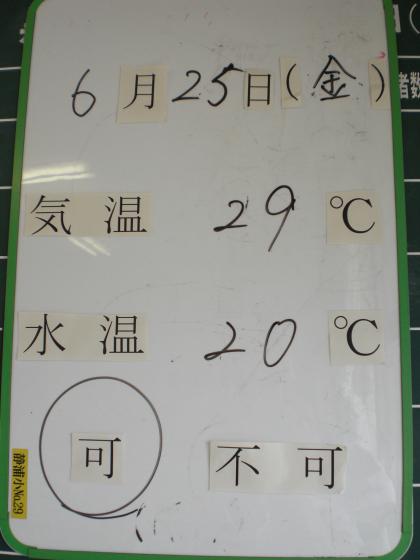 6月25日(金)
者数
気温 29℃
水温 20℃
可 不可
静浦小No.29